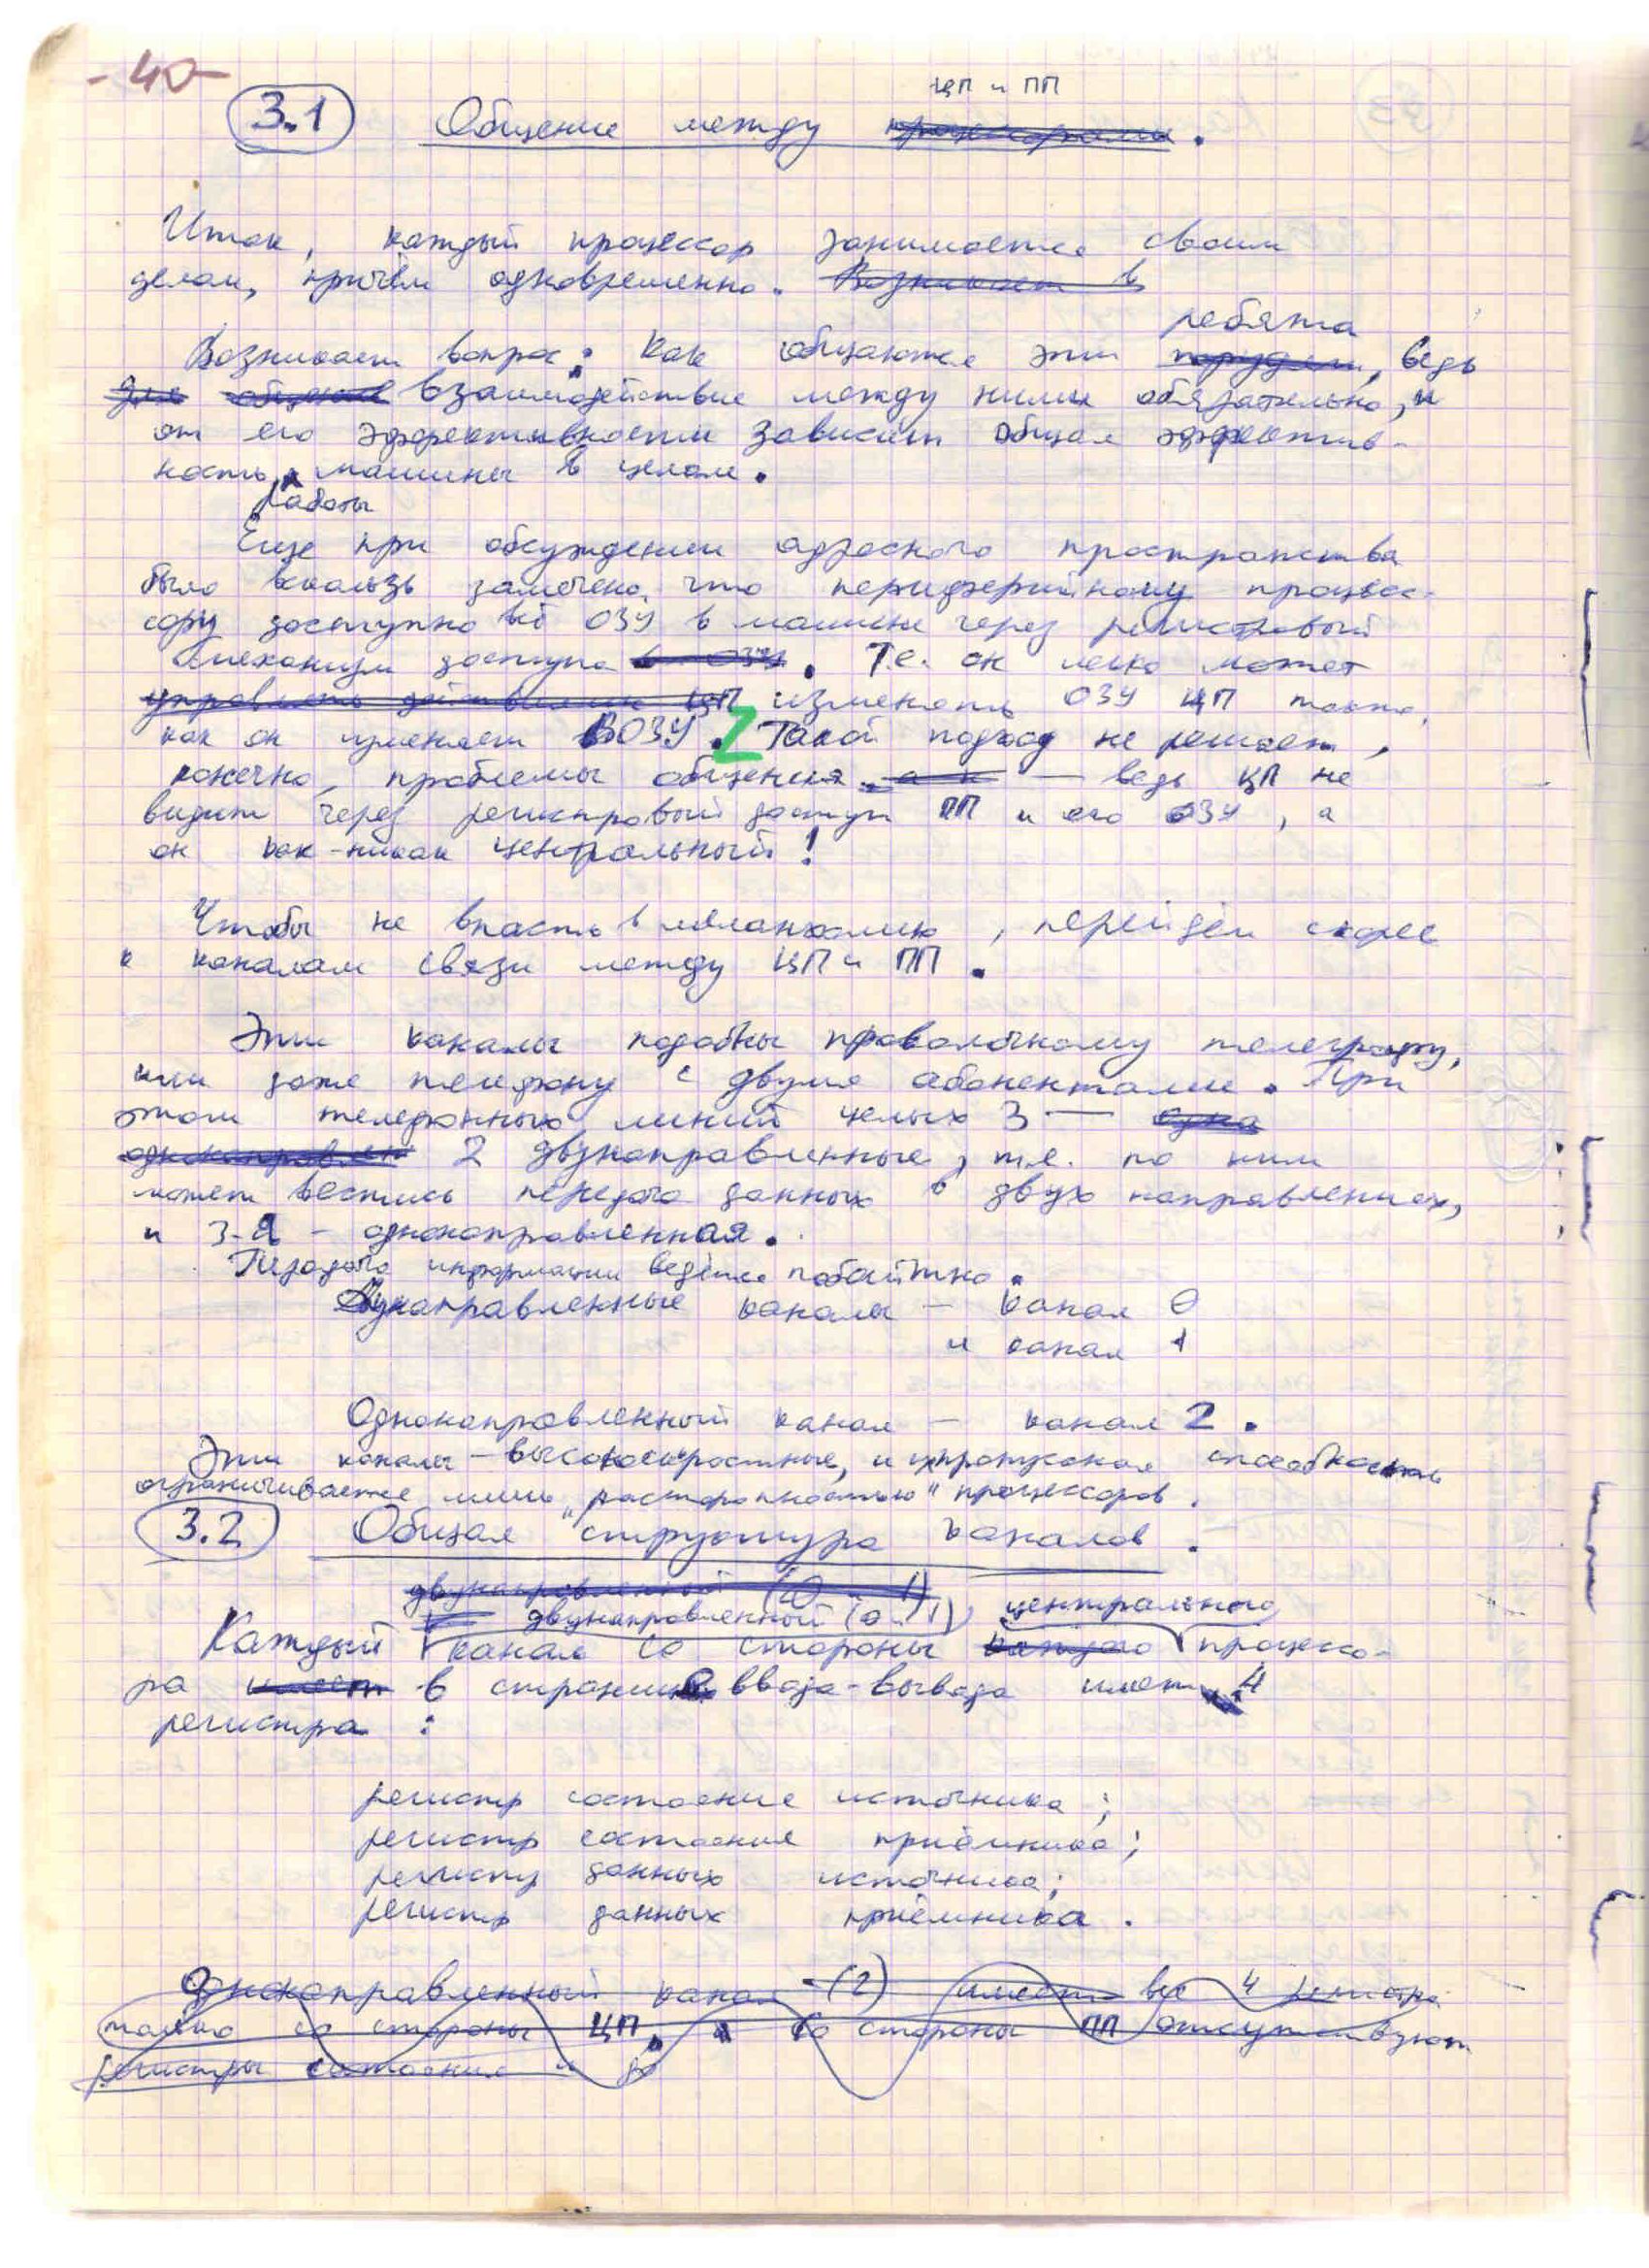 -40-
ЦП и ПП
3.1 Общение между процессорами.
Итак, каждый процессор занимается своим
делом, причём одновременно. Возникает в
ребята
Возникает вопрос: как общаются эти, ведь
для общения взаимодействие между ними обязательно, и
от его эффективности зависит общая эффектив-
ность машины в целом.
работы
Еще при обсуждении адресного пространства
было вскользь замечено, что периферийному процес-
сору доступно всё ОЗУ в машине через регистровый
механизм доступа в ОЗУ. Т.е. он легко может
управлять действиями ЦП изменять ОЗУ ЦП также,
как он изменяет ВОЗУ. Z Такой подход не решает,
конечно, проблемы общения — ведь ЦП не
видит через регистровый доступ ПП и его ОЗУ, а
он как-никак центральный!
Чтобы не впасть в меланхолию, перейдём скорее
к каналам связи между ЦП и ПП.
Эти каналы подобны проволочному телеграфу,
или даже телефону с двумя абонентами. При
этом телефонных линий целых 3 — одна
однонаправлен 2 двунаправленные, т.е. по ним
может вестись передача данных в двух направлениях,
и 3-я - однонаправленная.
Передача информации ведётся побайтно.
Двунаправленные каналы — канал 0
и канал 1
Однонаправленный канал — канал 2.
Эти каналы — высокоскоростные, и их пропускная способность
ограничивается лишь "расторопностью" процессоров.
3.2 Общая структура каналов.
двунаправленный (0 и 1)
двунаправленный (0 и 1) центрального
Каждый канал со стороны каждого процессо-
ра имеет в странице ввода-вывода имеет 4
регистра :
регистр состояние источника;
регистр состояния приёмника;
регистр данных источника;
регистр данных приёмника.
Однонаправленный канал (2) имеет все 4 регистра
только со стороны ЦП. Со стороны ПП отсутствуют
регистры состояния и